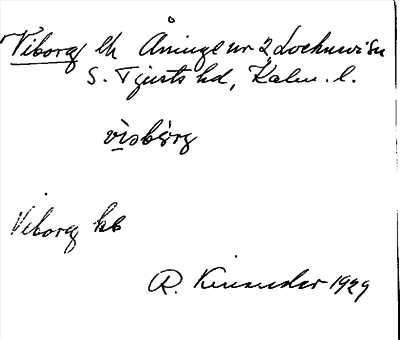 Viborg lh Åninge nr 2, Locknevi sn
S. Tjusts hd, Kalm. l.
visbårg
Viborg kb
R. Kinander 1929